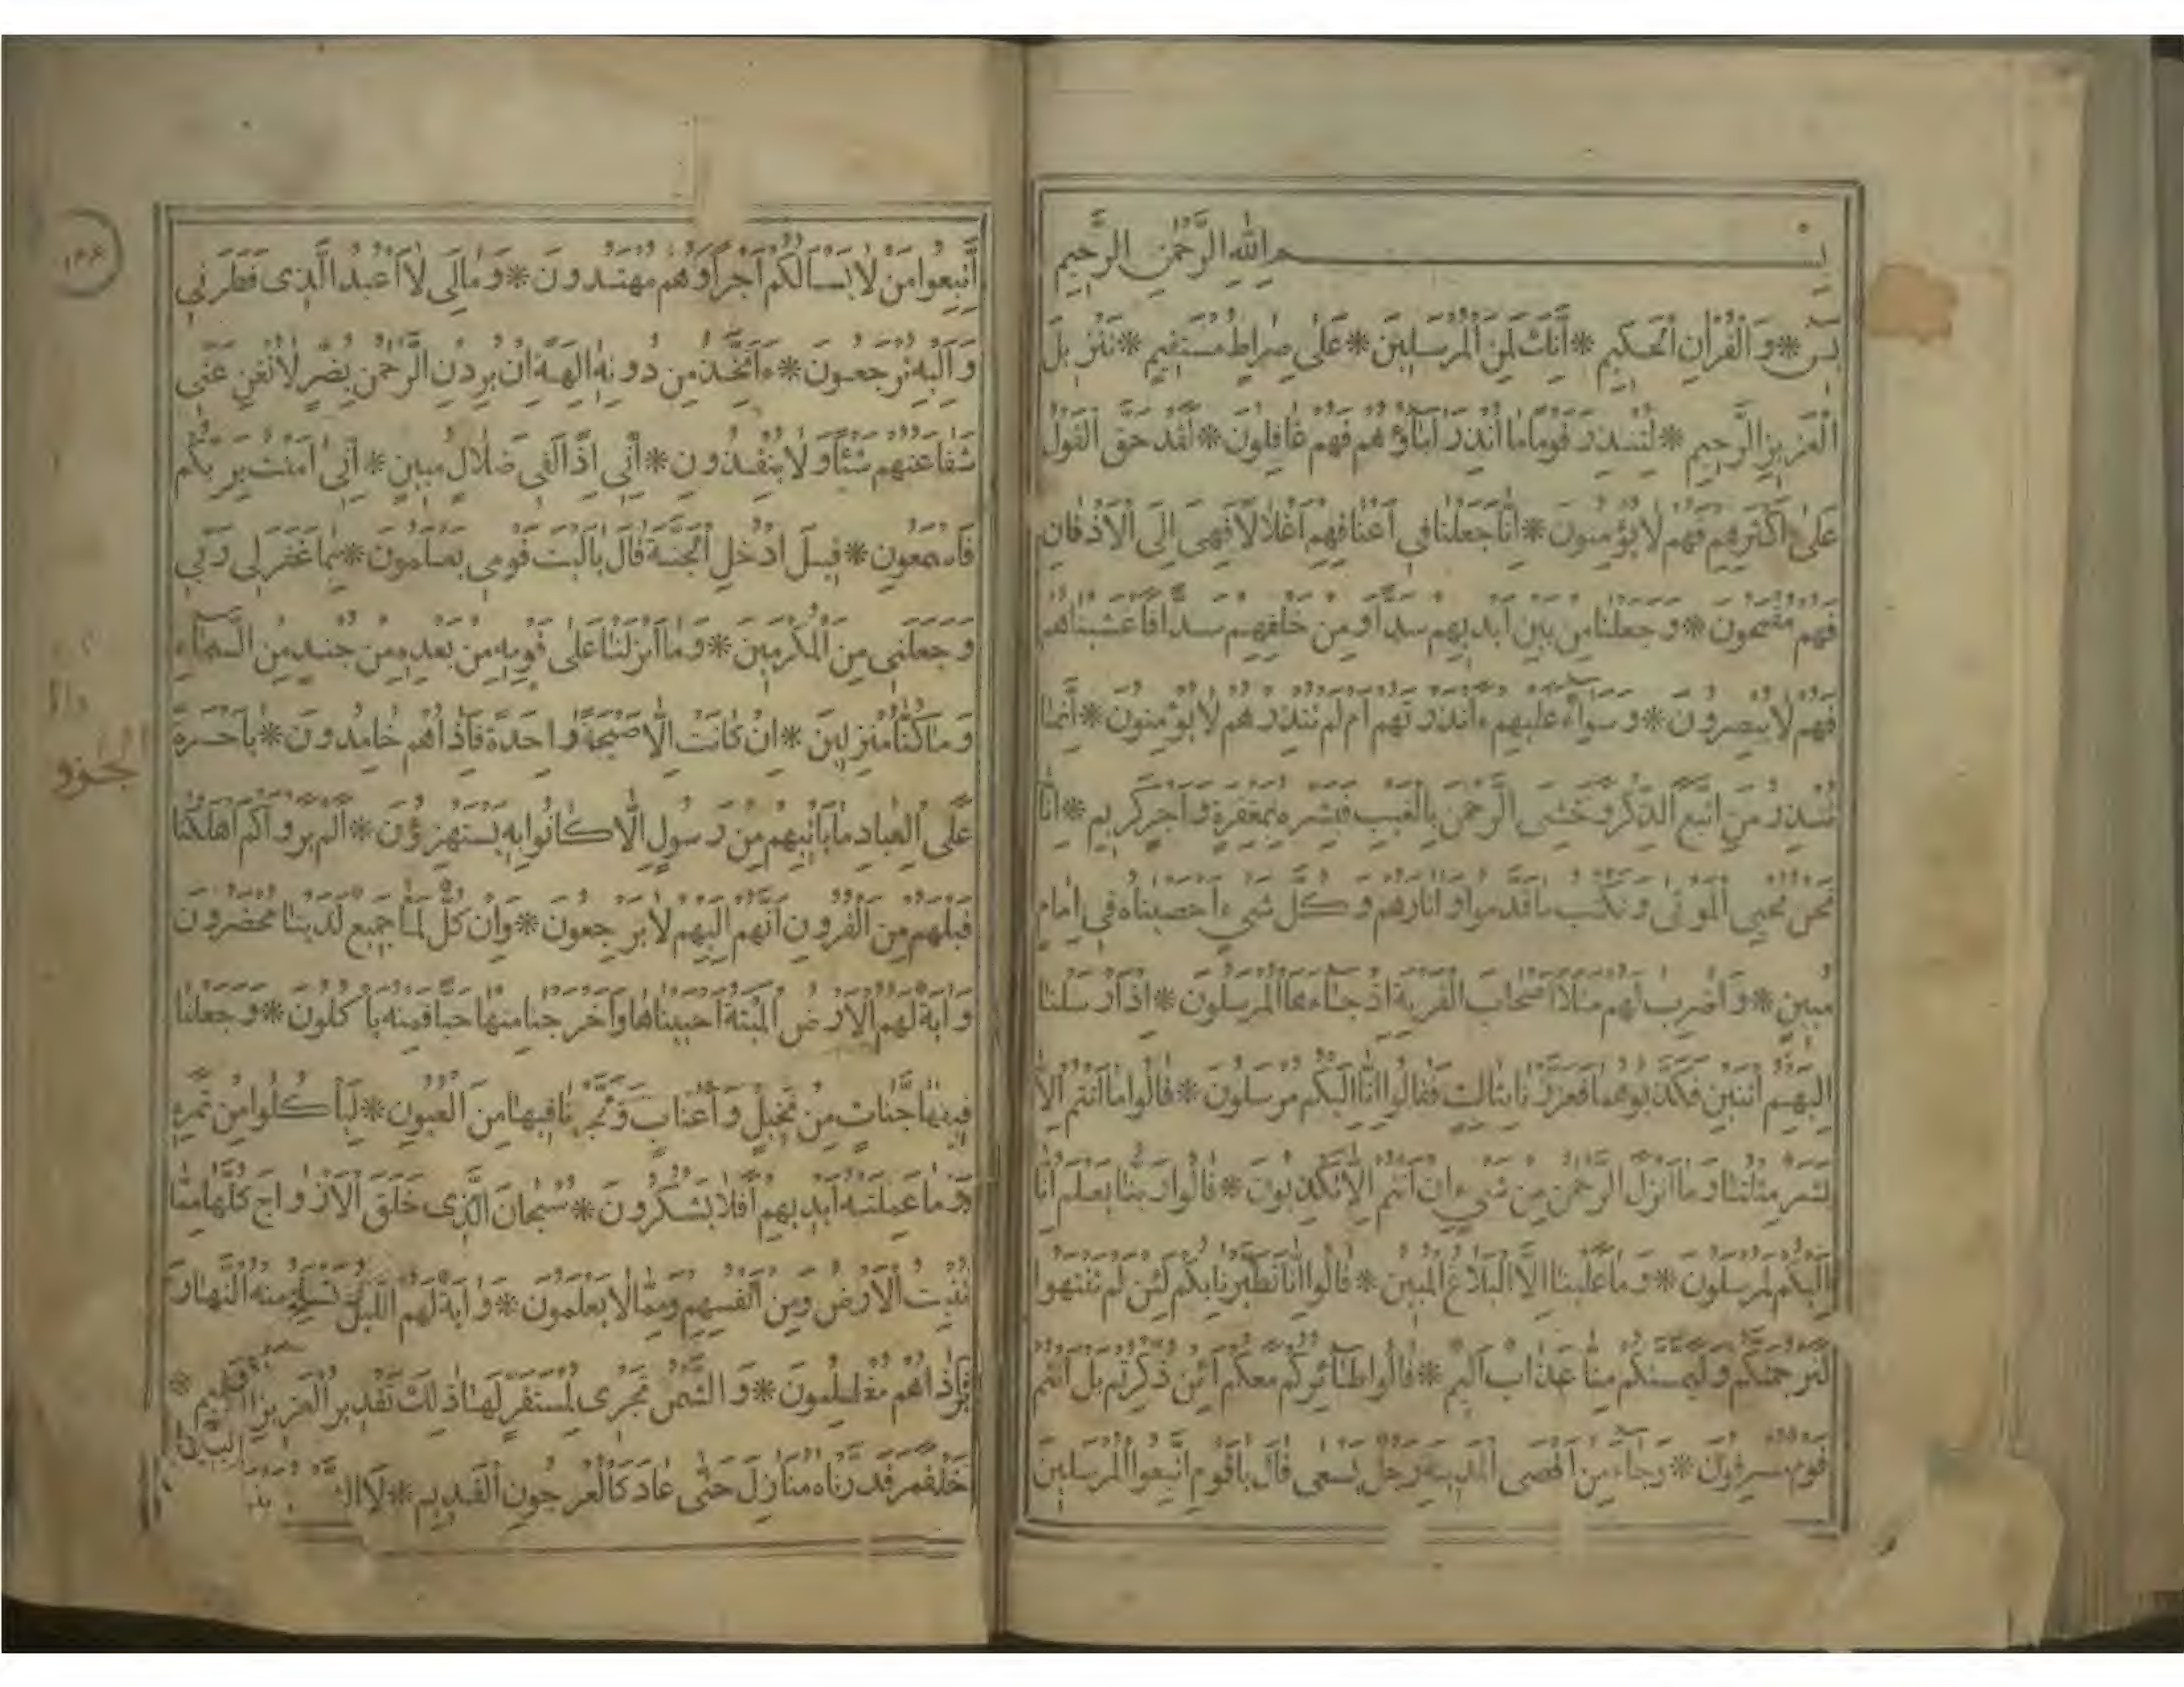 بِسْمِ اللهِ الرَّحْمٰنِ الرَّحِيمِ
يٰسٓ * وَالْقُرْاٰنِ الْحَكِيمِ * اِنَّكَ لَمِنَ الْمُرْسَلِينَ * عَلٰى صِرَاطٍ مُسْتَقِيمٍ * تَنْزِيلَ
الْعَزِيزِ الرَّحِيمِ * لِتُنْذِرَ قَوْمًا مَا اُنْذِرَ اٰبَاؤُهُمْ فَهُمْ غَافِلُونَ * لَقَدْ حَقَّ الْقَوْلُ
عَلٰى اَكْثَرِهِمْ فَهُمْ لَا يُؤْمِنُونَ * اِنَّا جَعَلْنَا فِى اَعْنَاقِهِمْ اَغْلَالًا فَهِىَ اِلَى الْاَذْقَانِ
فَهُمْ مُقْمَحُونَ * وَجَعَلْنَا مِنْ بَيْنِ اَيْدِيهِمْ سَدًّا وَمِنْ خَلْفِهِمْ سَدًّا فَاَغْشَيْنَاهُمْ
فَهُمْ لَا يُبْصِرُونَ * وَسَوَاءٌ عَلَيْهِمْ ءَاَنْذَرْتَهُمْ اَمْ لَمْ تُنْذِرْهُمْ لَا يُؤْمِنُونَ * اِنَّمَا
تُنْذِرُ مَنِ اتَّبَعَ الذِّكْرَ وَخَشِىَ الرَّحْمٰنَ بِالْغَيْبِ فَبَشِّرْهُ بِمَغْفِرَةٍ وَاَجْرٍ كَرِيمٍ * اِنَّا
نَحْنُ نُحْيِى الْمَوْتٰى وَنَكْتُبُ مَا قَدَّمُوا وَاٰثَارَهُمْ وَكُلَّ شَىْءٍ اَحْصَيْنَاهُ فِى اِمَامٍ
مُبِينٍ * وَاضْرِبْ لَهُمْ مَثَلًا اَصْحَابَ الْقَرْيَةِ اِذْ جَاءَهَا الْمُرْسَلُونَ * اِذْ اَرْسَلْنَا
اِلَيْهِمُ اثْنَيْنِ فَكَذَّبُوهُمَا فَعَزَّزْنَا بِثَالِثٍ فَقَالُوا اِنَّا اِلَيْكُمْ مُرْسَلُونَ * قَالُوا مَا اَنْتُمْ اِلَّا
بَشَرٌ مِثْلُنَا وَمَا اَنْزَلَ الرَّحْمٰنُ مِنْ شَىْءٍ اِنْ اَنْتُمْ اِلَّا تَكْذِبُونَ * قَالُوا رَبُّنَا يَعْلَمُ اِنَّا
اِلَيْكُمْ لَمُرْسَلُونَ * وَمَا عَلَيْنَا اِلَّا الْبَلَاغُ الْمُبِينُ * قَالُوا اِنَّا تَطَيَّرْنَا بِكُمْ لَئِنْ لَمْ تَنْتَهُوا
لَنَرْجُمَنَّكُمْ وَلَيَمَسَّنَّكُمْ مِنَّا عَذَابٌ اَلِيمٌ * قَالُوا طَائِرُكُمْ مَعَكُمْ اَئِنْ ذُكِّرْتُمْ بَلْ اَنْتُمْ
قَوْمٌ مُسْرِفُونَ * وَجَاءَ مِنْ اَقْصَى الْمَدِينَةِ رَجُلٌ يَسْعٰى قَالَ يَا قَوْمِ اتَّبِعُوا الْمُرْسَلِينَ
١٦٦
اِتَّبِعُوا مَنْ لَا يَسْاَلُكُمْ اَجْرًا وَهُمْ مُهْتَدُونَ * وَمَا لِىَ لَا اَعْبُدُ الَّذِى فَطَرَنِى
وَاِلَيْهِ تُرْجَعُونَ * ءَاَتَّخِذُ مِنْ دُونِهِ اٰلِهَةً اِنْ يُرِدْنِ الرَّحْمٰنُ بِضُرٍّ لَا تُغْنِ عَنِّى
شَفَاعَتُهُمْ شَيْئًا وَلَا يُنْقِذُونِ * اِنِّى اِذًا لَفِى ضَلَالٍ مُبِينٍ * اِنِّى اٰمَنْتُ بِرَبِّكُمْ
فَاسْمَعُونِ * قِيلَ ادْخُلِ الْجَنَّةَ قَالَ يَا لَيْتَ قَوْمِى يَعْلَمُونَ * بِمَا غَفَرَ لِى رَبِّى
وَجَعَلَنِى مِنَ الْمُكْرَمِينَ * وَمَا اَنْزَلْنَا عَلٰى قَوْمِهِ مِنْ بَعْدِهِ مِنْ جُنْدٍ مِنَ السَّمَاءِ
وَمَا كُنَّا مُنْزِلِينَ * اِنْ كَانَتْ اِلَّا صَيْحَةً وَاحِدَةً فَاِذَا هُمْ خَامِدُونَ * يَا حَسْرَةً
عَلَى الْعِبَادِ مَا يَاْتِيهِمْ مِنْ رَسُولٍ اِلَّا كَانُوا بِهِ يَسْتَهْزِؤُنَ * اَلَمْ يَرَوْا كَمْ اَهْلَكْنَا
قَبْلَهُمْ مِنَ الْقُرُونِ اَنَّهُمْ اِلَيْهِمْ لَا يَرْجِعُونَ * وَاِنْ كُلٌّ لَمَّا جَمِيعٌ لَدَيْنَا مُحْضَرُونَ
وَاٰيَةٌ لَهُمُ الْاَرْضُ الْمَيْتَةُ اَحْيَيْنَاهَا وَاَخْرَجْنَا مِنْهَا حَبًّا فَمِنْهُ يَاْكُلُونَ * وَجَعَلْنَا
فِيهَا جَنَّاتٍ مِنْ نَخِيلٍ وَاَعْنَابٍ وَفَجَّرْنَا فِيهَا مِنَ الْعُيُونِ * لِيَاْكُلُوا مِنْ ثَمَرِهِ
وَمَا عَمِلَتْهُ اَيْدِيهِمْ اَفَلَا يَشْكُرُونَ * سُبْحَانَ الَّذِى خَلَقَ الْاَزْوَاجَ كُلَّهَا مِمَّا
تُنْبِتُ الْاَرْضُ وَمِنْ اَنْفُسِهِمْ وَمِمَّا لَا يَعْلَمُونَ * وَاٰيَةٌ لَهُمُ اللَّيْلُ نَسْلَخُ مِنْهُ النَّهَارَ
فَاِذَا هُمْ مُظْلِمُونَ * وَالشَّمْسُ تَجْرِى لِمُسْتَقَرٍّ لَهَا ذٰلِكَ تَقْدِيرُ الْعَزِيزِ الْعَلِيمِ *
قَدَّرْنَاهُ مَنَازِلَ حَتّٰى عَادَ كَالْعُرْجُونِ الْقَدِيمِ * لَا